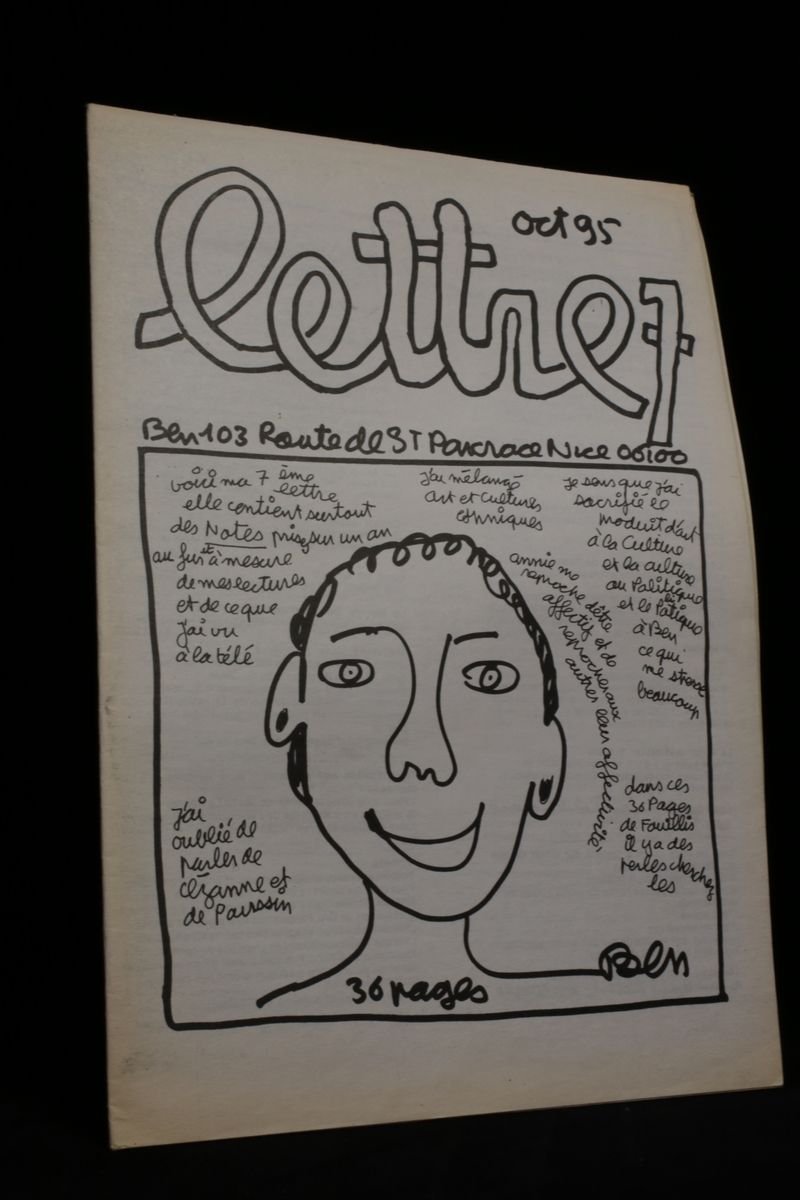 oct 95
lettre 7
Ben 103 Route de ST Pancrace Nice 06100
voici ma 7 ème
lettre
elle contient surtout
des Notes prises sur un an
au fur et à mesure
de mes lectures
et de ce que
j'ai vu
à la télé
j'ai mélangé
art et cultures
ethniques
je sens que j'ai
sacrifié le
produit d'art
à la Culture
et la culture
au Politique
et le Politique
à Ben
ce qui
me stresse
beaucoup
annie me
reproche d'être
affectif et de
reprocher aux
autres leur affectivité
j'ai
oublié de
parler de
Cézanne et
de Poussin
dans ces
36 Pages
de Fouillis
il y a des
perles cherchez
les
Ben
36 pages